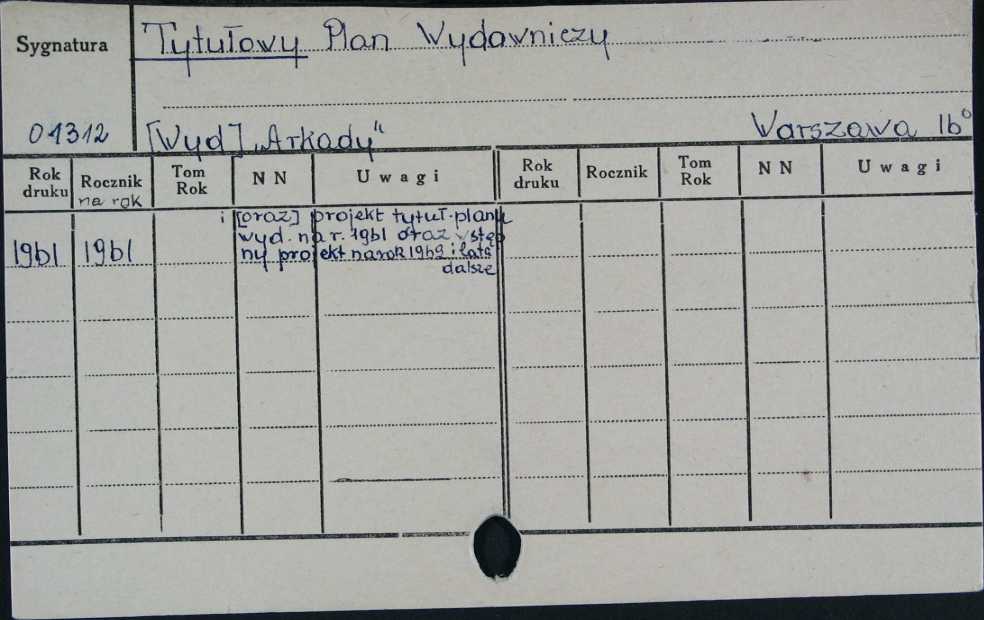 Sygnatura
Tytułowy Plan Wydawniczy
01312
[Wyd] „Arkady"
Warszawa 16°
Rok druku Rocznik na rok Tom Rok NN Uwagi Rok druku Rocznik Tom Rok NN Uwagi
i [oraz] projekt tytuł. planu
wyd. na r. 1961 oraz wstęp
1961 1961 ny projekt na rok 1962 i lata
dalsze